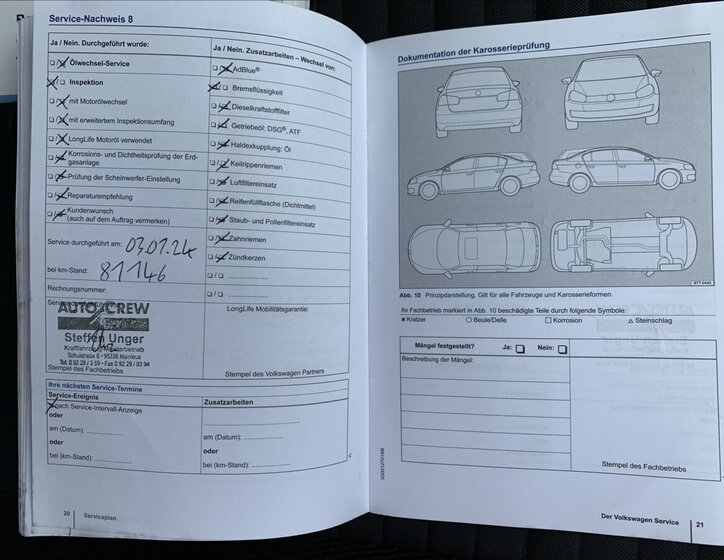 Service-Nachweis 8
Ja / Nein. Durchgeführt wurde:
Ölwechsel-Service
Inspektion
mit Motorölwechsel
mit erweitertem Inspektionsumfang
LongLife Motoröl verwendet
Korrosions- und Dichtheitsprüfung der Erd-
gasanlage
Prüfung der Scheinwerfer-Einstellung
Reparaturempfehlung
Kundenwunsch
(auch auf dem Auftrag vermerken)
Service durchgeführt am: 03.01.24
bei km-Stand: 81146
Rechnungsnummer:
AUTO CREW
Steffen Unger
Schulstraße 8 • 95336 Mainleus
Tel. 0 92 29 / 3 59 • Fax 0 92 29 / 83 94
Stempel des Fachbetriebs
Ja / Nein. Zusatzarbeiten – Wechsel von:
AdBlue®
Bremsflüssigkeit
Dieselkraftstofffilter
Getriebeöl: DSG®, ATF
Haldexkupplung: Öl
Keilrippenriemen
Luftfiltereinsatz
Reifenfüllflasche (Dichtmittel)
Staub- und Pollenfiltereinsatz
Zahnriemen
Zündkerzen
LongLife Mobilitätsgarantie:
Stempel des Volkswagen Partners
Ihre nächsten Service-Termine
Service-Ereignis
nach Service-Intervall-Anzeige
oder
am (Datum):
oder
bei (km-Stand):
Zusatzarbeiten
am (Datum):
oder
bei (km-Stand):
20 Serviceplan
Dokumentation der Karosserieprüfung
BTT-0446
Abb. 10 Prinzipdarstellung. Gilt für alle Fahrzeuge und Karosserieformen.
Ihr Fachbetrieb markiert in Abb. 10 beschädigte Teile durch folgende Symbole:
× Kratzer ○ Beule/Delle □ Korrosion △ Steinschlag
Mängel festgestellt? Ja: □ Nein: □
Beschreibung der Mängel:
Stempel des Fachbetriebs
3G0012701SB
Der Volkswagen Service 21